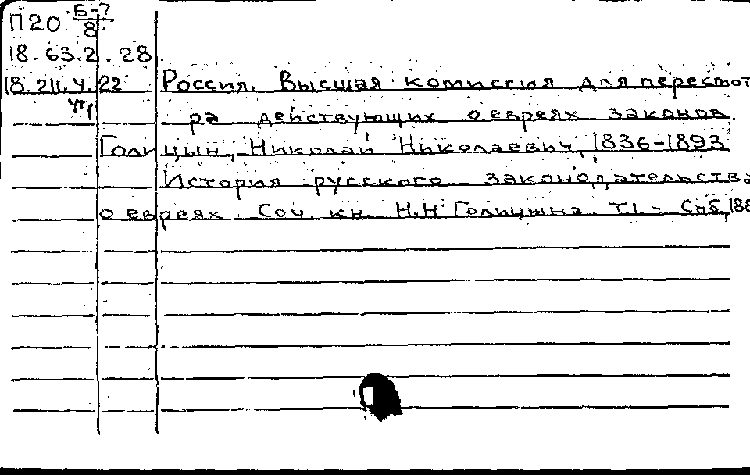 П20 Б-7/8
18.63.2.28
18.211.4.22 Россия. Высшая комиссия для пересмот
ра действующих о евреях законов
Голицын, Николай Николаевич, 1836-1893
История русского законодательства
о евреях. Соч. кн. Н.Н Голицына. Т1.- Спб, 188